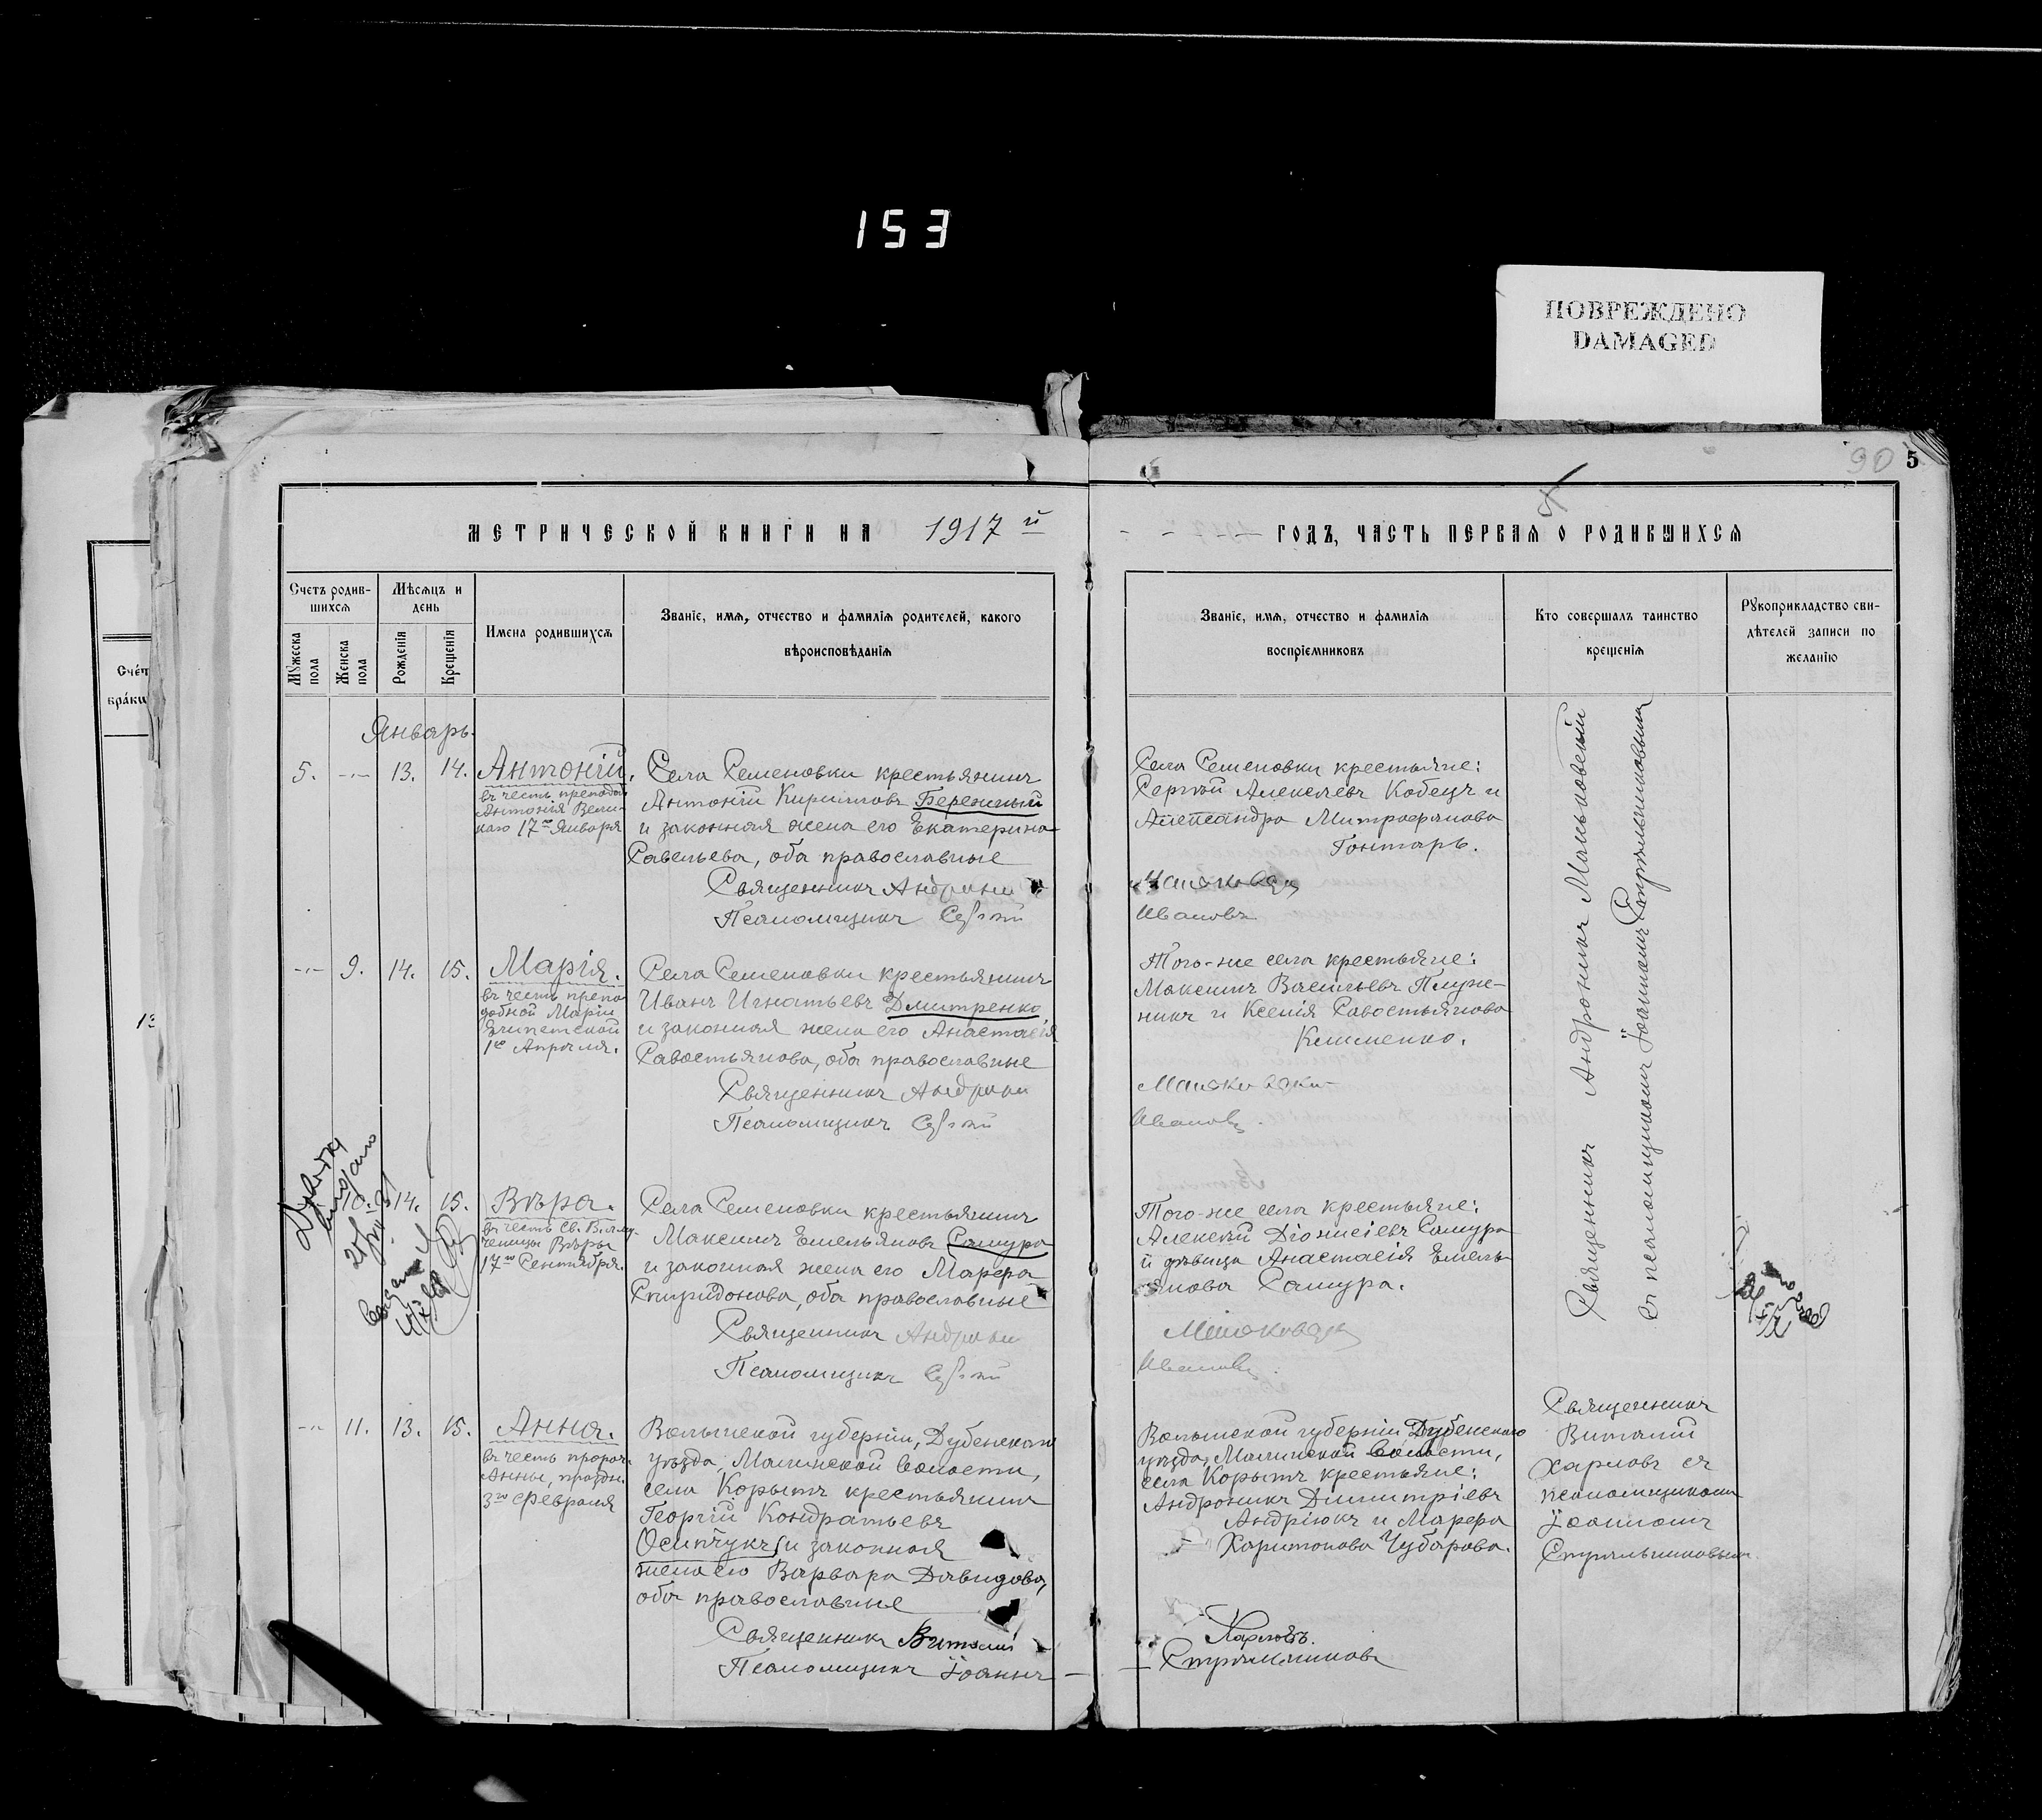 153
ПОВРЕЖДЕНО
DAMAGED
90 5
МЕТРИЧЕСКОЙ КНИГИ НА 1917 й
ГОДЪ, ЧАСТЬ ПЕРВАЯ О РОДИВШИХСЯ
Счетъ родив-
шихся
Мужеска пола
Женска пола
Мѣсяцъ и
день
Рожденія
Крещенія
Имена родившихся
Званіе, имя, отчество и фамилія родителей, какого
вѣроисповѣданія
Званіе, имя, отчество и фамилія
воспріемниковъ
Кто совершалъ таинство
крещенія
Рукоприкладство сви-
дѣтелей записи по
желанію
Январь.
5. 13. 14. Антоній.
въ честь преподоб
Антонія Вели-
каго 17го Января
Села Семеновки крестьянинъ
Антоній Кирилловъ Бережный
и законная жена его Екатерина
Савельева, оба православные
Священникъ Андрони
Псаломщикъ Сергій
Села Семеновки крестьяне:
Сергій Алексѣевъ Кобецъ и
Александра Митрофанова
Гонтарь.
Ивановъ
Священникъ Андроникъ Мальковскій
съ псаломщикомъ Іоанномъ Стрѣльниковымъ
9. 14. 15. Марія.
въ честь препо
добной Маріи
Египетской
1го Апрѣля.
Села Семеновки крестьянинъ
Иванъ Игнатьевъ Дмитренко
и законная жена его Анастасія
Савостьянова, оба православные
Священникъ Андрони
Псаломщикъ Сергій
Того-же села крестьяне:
Максимъ Васильевъ Плуж-
никъ и Ксенія Савостьянова
Клименко.
Ивановъ
10. 14. 15. Вѣра.
въ честь Св. В. му-
ченицы Вѣры
17го Сентября.
Села Семеновки крестьянинъ
Максимъ Емельяновъ Самура
и законная жена его Марфа
Спиридонова, оба православные
Священникъ Андрони
Псаломщикъ Сергій
Того-же села крестьяне:
Алексѣй Діонисіевъ Самура
и дѣвица Анастасія Емель-
янова Самура.
Ивановъ
11. 13. 15. Анна.
въ честь пророч.
Анны, праздн.
3го Февраля
Волынской губерніи, Дубенскаго
уѣзда, Малинской волости,
села Корытъ крестьянинъ
Георгій Кондратьевъ
Осипчукъ и законная
жена его Варвара Давидова,
оба православные
Священникъ Виталій
Псаломщикъ Іоаннъ
Волынской губерніи Дубенскаго
уѣзда, Малинской волости,
села Корытъ крестьяне:
Андроникъ Димитріевъ
Андріюкъ и Марфа
Харитонова Чубарова.
Харловъ.
Стрѣльниковъ
Священникъ
Виталій
Харловъ съ
псаломщикомъ
Іоанномъ
Стрѣльниковымъ